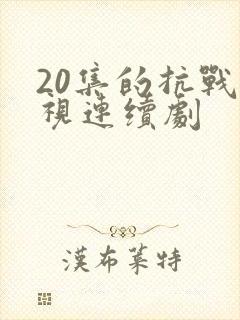 20集的抗戰
視連續劇
漢布萊特